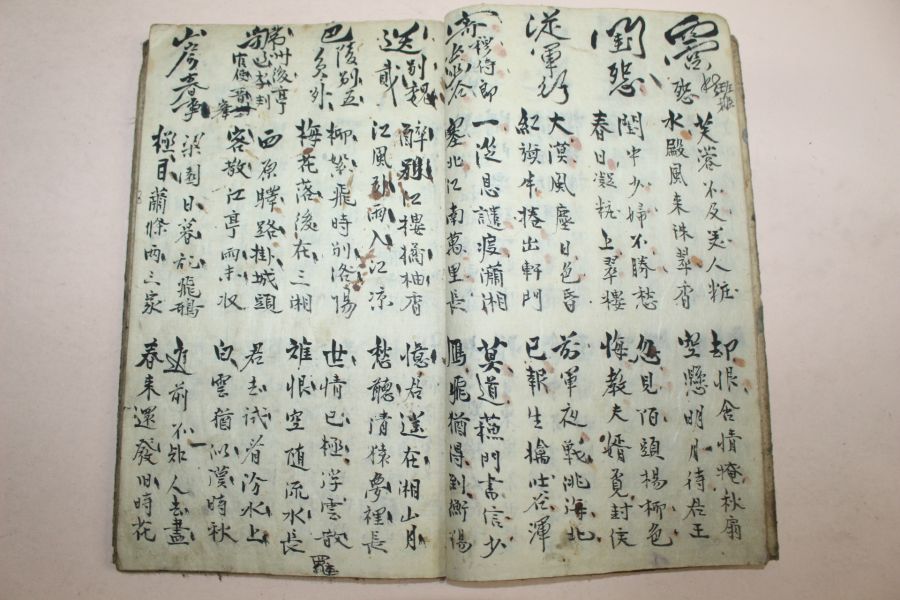 怨
芙蓉不及美人粧
水殿風来珠翠香
却恨含情掩秋扇
空懸明月待君王
閨怨
閨中少婦不勝愁
春日凝粧上翠樓
忽見陌頭楊柳色
悔教夫婿覓封侯
従軍行
大漠風塵日色昏
紅旗半捲出軒門
前軍夜戦洮海北
已報生擒吐谷渾
寄穆侍郎
一従恩譴度瀟湘
塞北江南萬里長
莫道薊門書信少
鴈飛猶得到衡陽
送別魏
貳
醉別江樓橘柚香
江風引雨入江凉
憶君遥在湘山月
愁聽清猿夢裡長
巴陵別五
員外
柳絮飛時別洛陽
梅花落後在三湘
世情已極浮雲散
離恨空随流水長
西原驛路掛城頭
客散江亭雨未収
君去試看汾水上
白雲猶似漢時秋
山房春事
梁園日暮乱飛鴉
極目蕭條両三家
庭前不知人去盡
春来還發旧時花